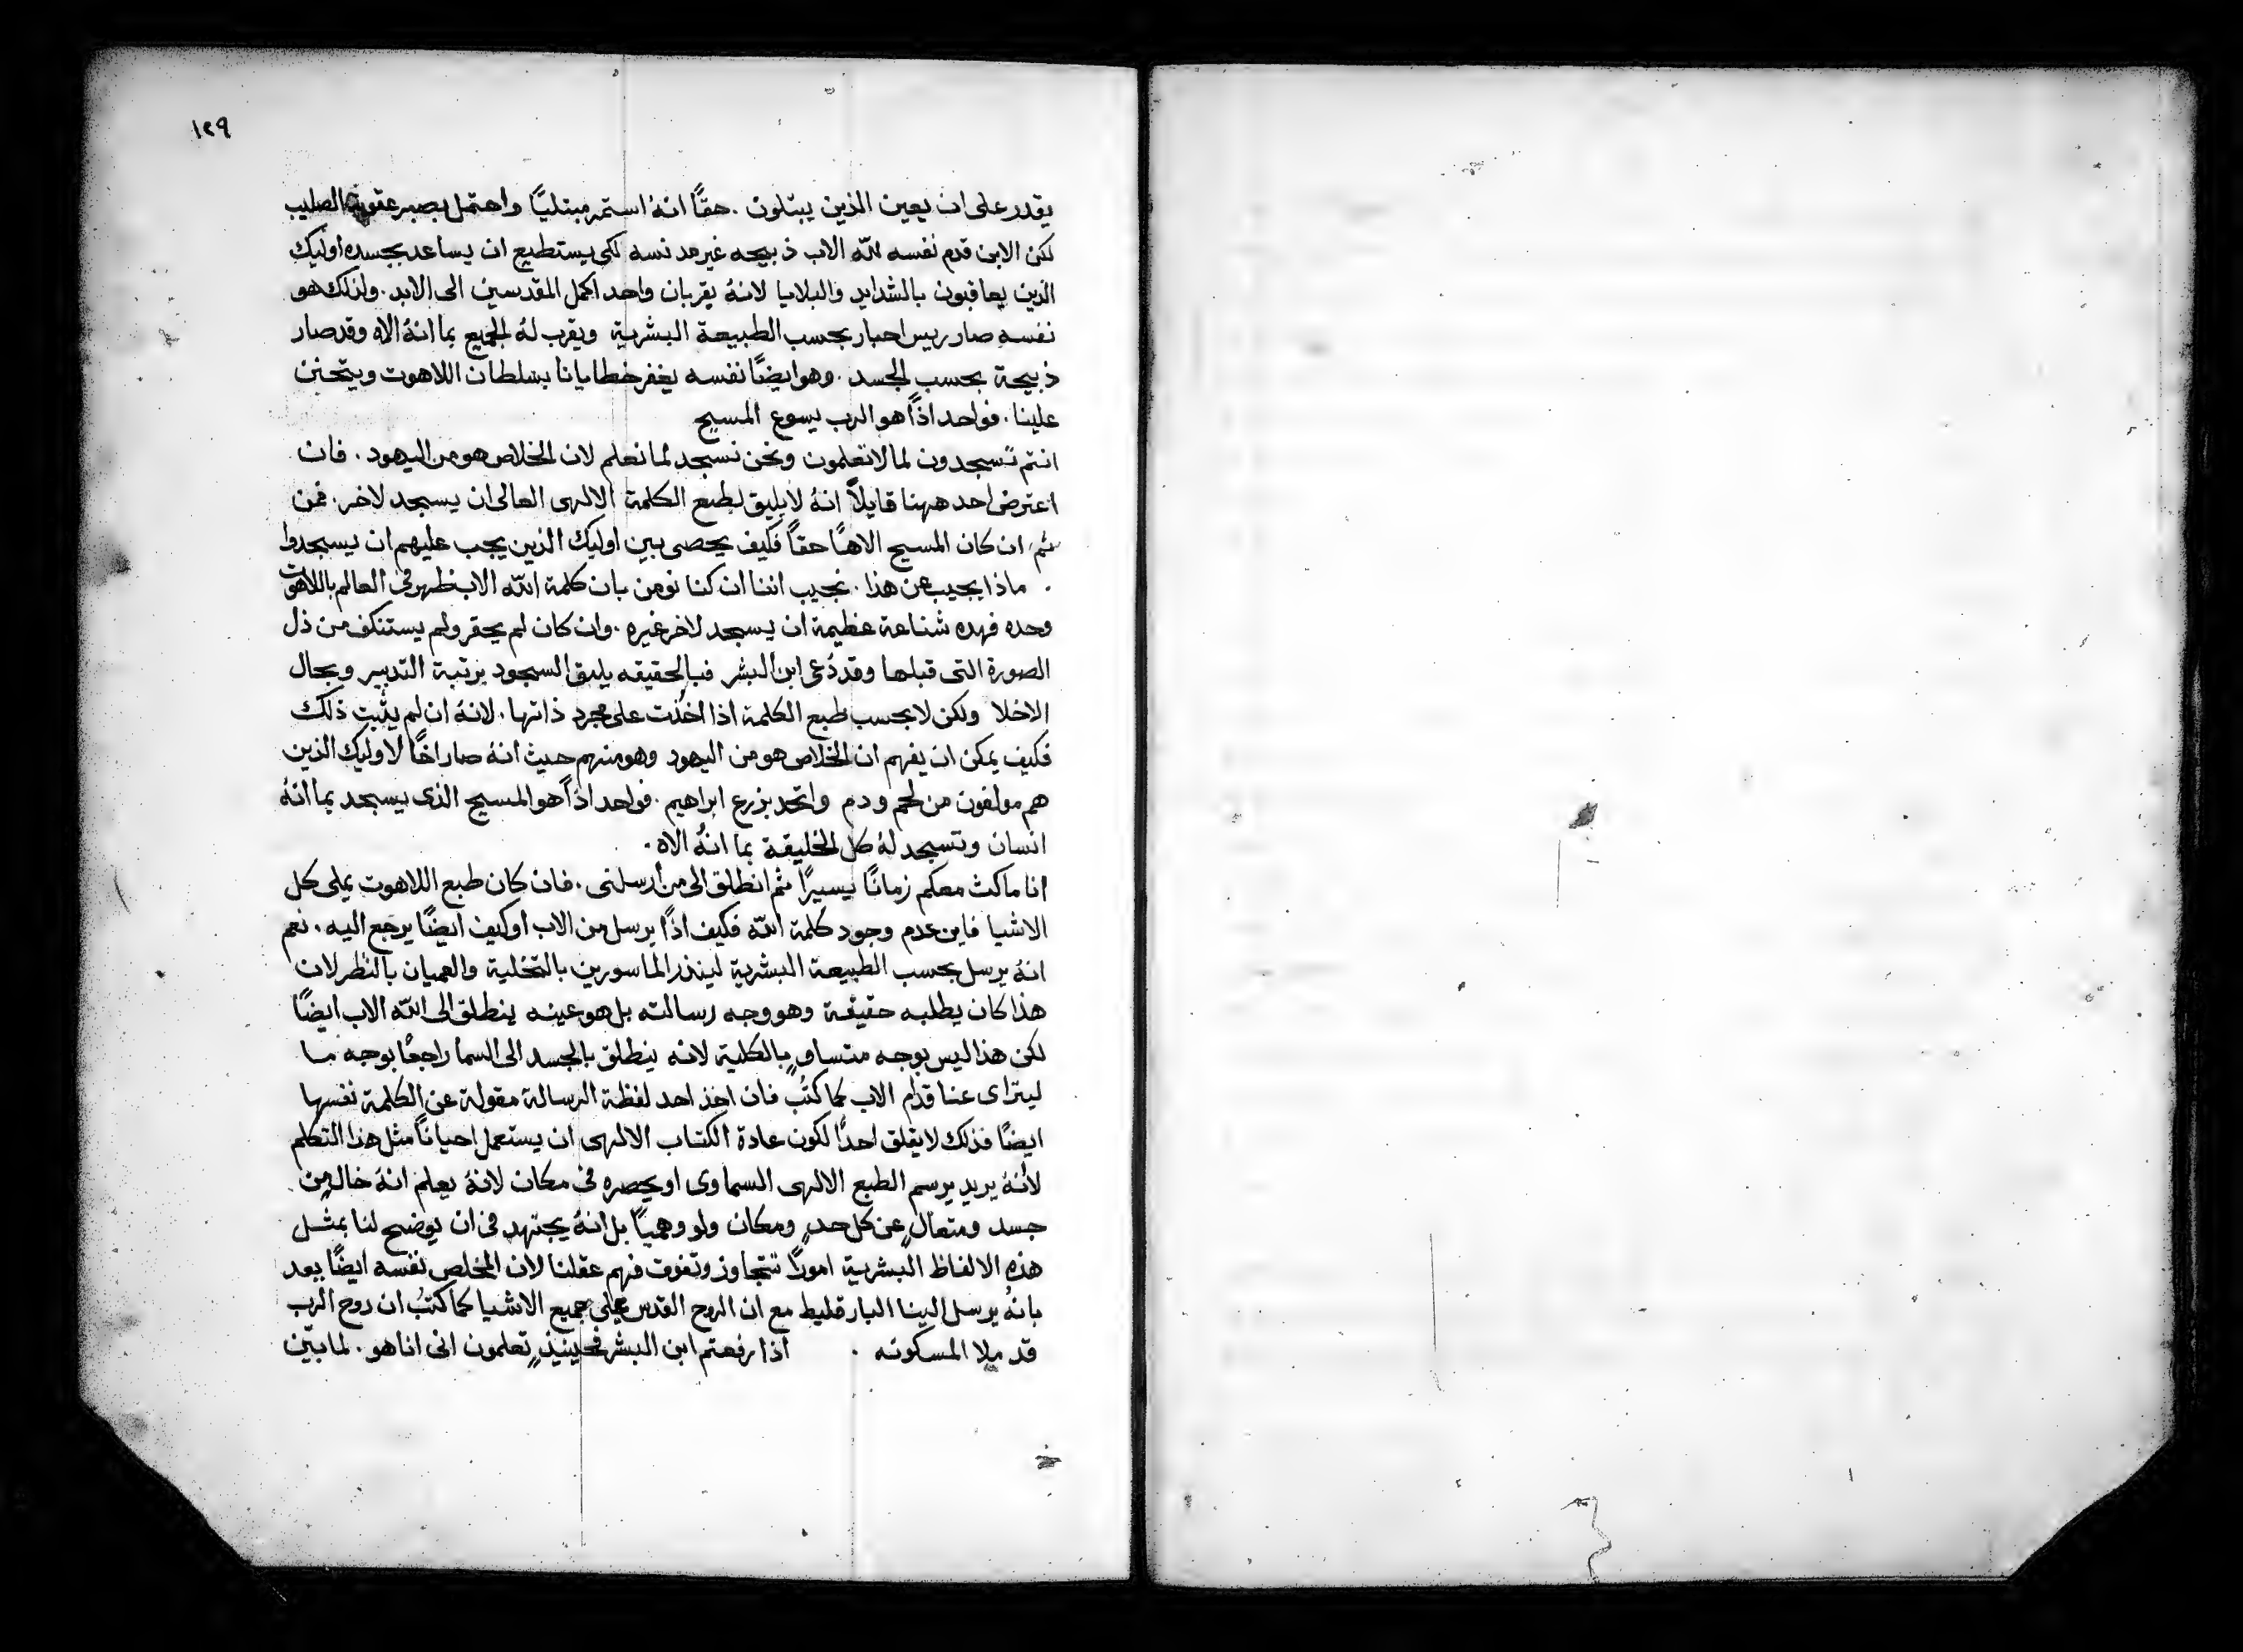 ١٢٩
يقدر على ان يعين الذين يبتلون . حقًا انهُ استمر مبتليًا واحتمل بصبر عقوبة الصليب
لكن الابن قدم نفسه للّه الاب ذبيحه غير مدنسه لكى يستطيع ان يساعد بجسده اوليك
الذين يعاقبون بالشدايد والبلايا لانهُ بقربان واحد اكمل المقدسين الى الابد . ولذلك هو
نفسه صار ريس احبار بحسب الطبيعة البشرية ويقرب لهُ الجميع بما انهُ الاه وقد صار
ذبيحة بحسب الجسد . وهو ايضًا نفسه يغفر خطايانا بسلطان اللاهوت ويتحنن
علينا . فواحد اذًا هو الرب يسوع المسيح
انتم تسجدون لما لا تعلمون ونحن نسجد لما نعلم لان الخلاص هو من اليهود . فان
اعترض احد ههنا قايلاً انهُ لا يليق لطبع الكلمة الالهى العالى ان يسجد لاخر . فمن
ثم ان كان المسيح الاهًا حقاً فكيف يحصى بين اوليك الذين يجب عليهم ان يسجدوا
. ماذا يجيب عن هذا . نجيب اننا ان كنا نومن بان كلمة اللّه الاب ظهر فى العالم باللاهوت
وحده فهده شناعة عظيمة ان يسجد لاخر غيره . وان كان لم يحقر ولم يستنكف من ذل
الصورة التى قبلها وقد دُعى ابن البشر فبالحقيقه يليق السجود برتبة التدبير وبحال
الاخلا ولكن لا بحسب طبع الكلمة اذا اخذت على مجرد ذاتها . لانهُ ان لم يثبت ذلك
فكيف يمكن ان يفهم ان الخلاص هو من اليهود وهو منهم حيث انهُ صار اخًا لاوليك الذين
هم مولفون من لحم ودم واتحد بزرع ابراهيم . فواحد اذًا هو المسيح الذى يسجد بما انهُ
انسان وتسجد لهُ كل الخليقة بما انهُ الاه .
انا ماكث معكم زمانًا يسيرًا ثم انطلق الى من ارسلنى . فان كان طبع اللاهوت يملى كل
الاشيا فاين عدم وجود كلمة اللّه فكيف اذًا يرسل من الاب او كيف ايضًا يرجع اليه . نعم
انهُ يرسل بحسب الطبيعة البشرية لينذر الماسورين بالتخلية والعميان بالنظر لان
هذا كان يطلبه حقيقة وهو وجه رسالته بل هو عينه ينطلق الى اللّه الاب ايضًا
لكن هذا ليس بوجه متساوٍ بالكلية لانه ينطلق بالجسد الى السما راجعًا بوجه ما
ليتراى عنا قدام الاب كما كتُب فان اخذ احد لفظة الرسالة مقولة عن الكلمة نفسها
ايضًا فذلك لا يقلق احدًا لكون عادة الكتاب الالهى ان يستعمل احيانًا مثل هذا التكلم
لانهُ يريد يرسم الطبع الالهى السماوى او يحصره فى مكان لانهُ يعلم انهُ خالٍ من
جسد ومتعالٍ عن كل حدٍ ومكان ولو وهميًا بل انهُ يجتهد فى ان يوضح لنا بمثل
هذه الالفاظ البشرية امورًا تتجاوز وتفوت فهم عقلنا لان المخلص نفسه ايضًا يعد
بانهُ يرسل الينا البارقليط مع ان الروح القدس يملى جميع الاشيا كما كتُب ان روح الرب
قد ملا المسكونه . اذا رفعتم ابن البشر فحينيذٍ تعلمون انى انا هو . لما بيّن